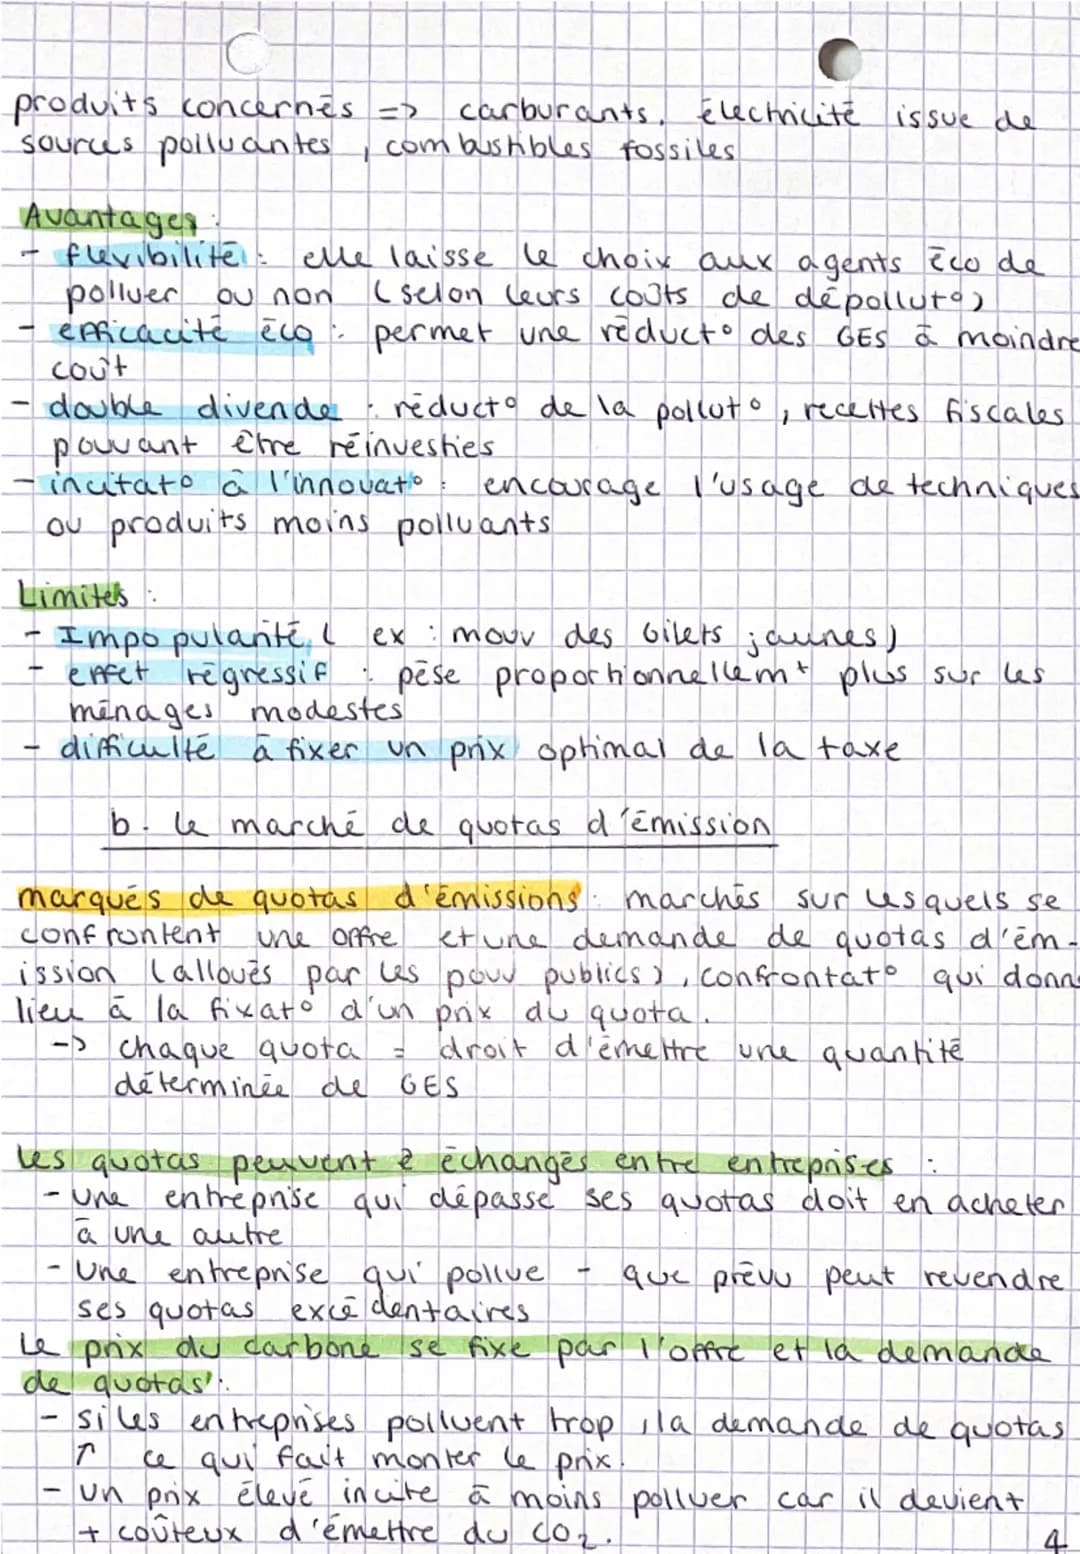 produits concernés => carburants, électricité issue de
sources polluantes, combustibles fossiles
Avantages :
- flexibilité : elle laisse le choix aux agents éco de
polluer ou non (selon leurs coûts de dépollut°)
- efficacité éco : permet une réduct° des GES à moindre
coût
- double divende : réduct° de la pollut°, recettes fiscales
pouvant être réinvesties
- incitat° à l'innovat° : encourage l'usage de techniques
ou produits moins polluants
Limites :
- Impopularité ( ex : mouv des Gilets jaunes)
- effet régressif : pèse proportionnellemt plus sur les
ménages modestes
- difficulté à fixer un prix optimal de la taxe
b. le marché de quotas d'émission
marqués de quotas d'émissions : marchés sur lesquels se
confrontent une offre et une demande de quotas d'ém-
ission (alloués par les pouv publics), confrontat° qui donne
lieu à la fixat° d'un prix du quota.
-> chaque quota = droit d'émettre une quantité
déterminée de GES
Les quotas peuvent ê échangés entre entreprises :
- une entreprise qui dépasse ses quotas doit en acheter
à une autre
- Une entreprise qui pollue - que prévu peut revendre
ses quotas excédentaires
Le prix du carbone se fixe par l'offre et la demande
de quotas :
- si les entreprises polluent trop, la demande de quotas
↑ ce qui fait monter le prix.
- un prix élevé incite à moins polluer car il devient
+ coûteux d'émettre du CO2.
4